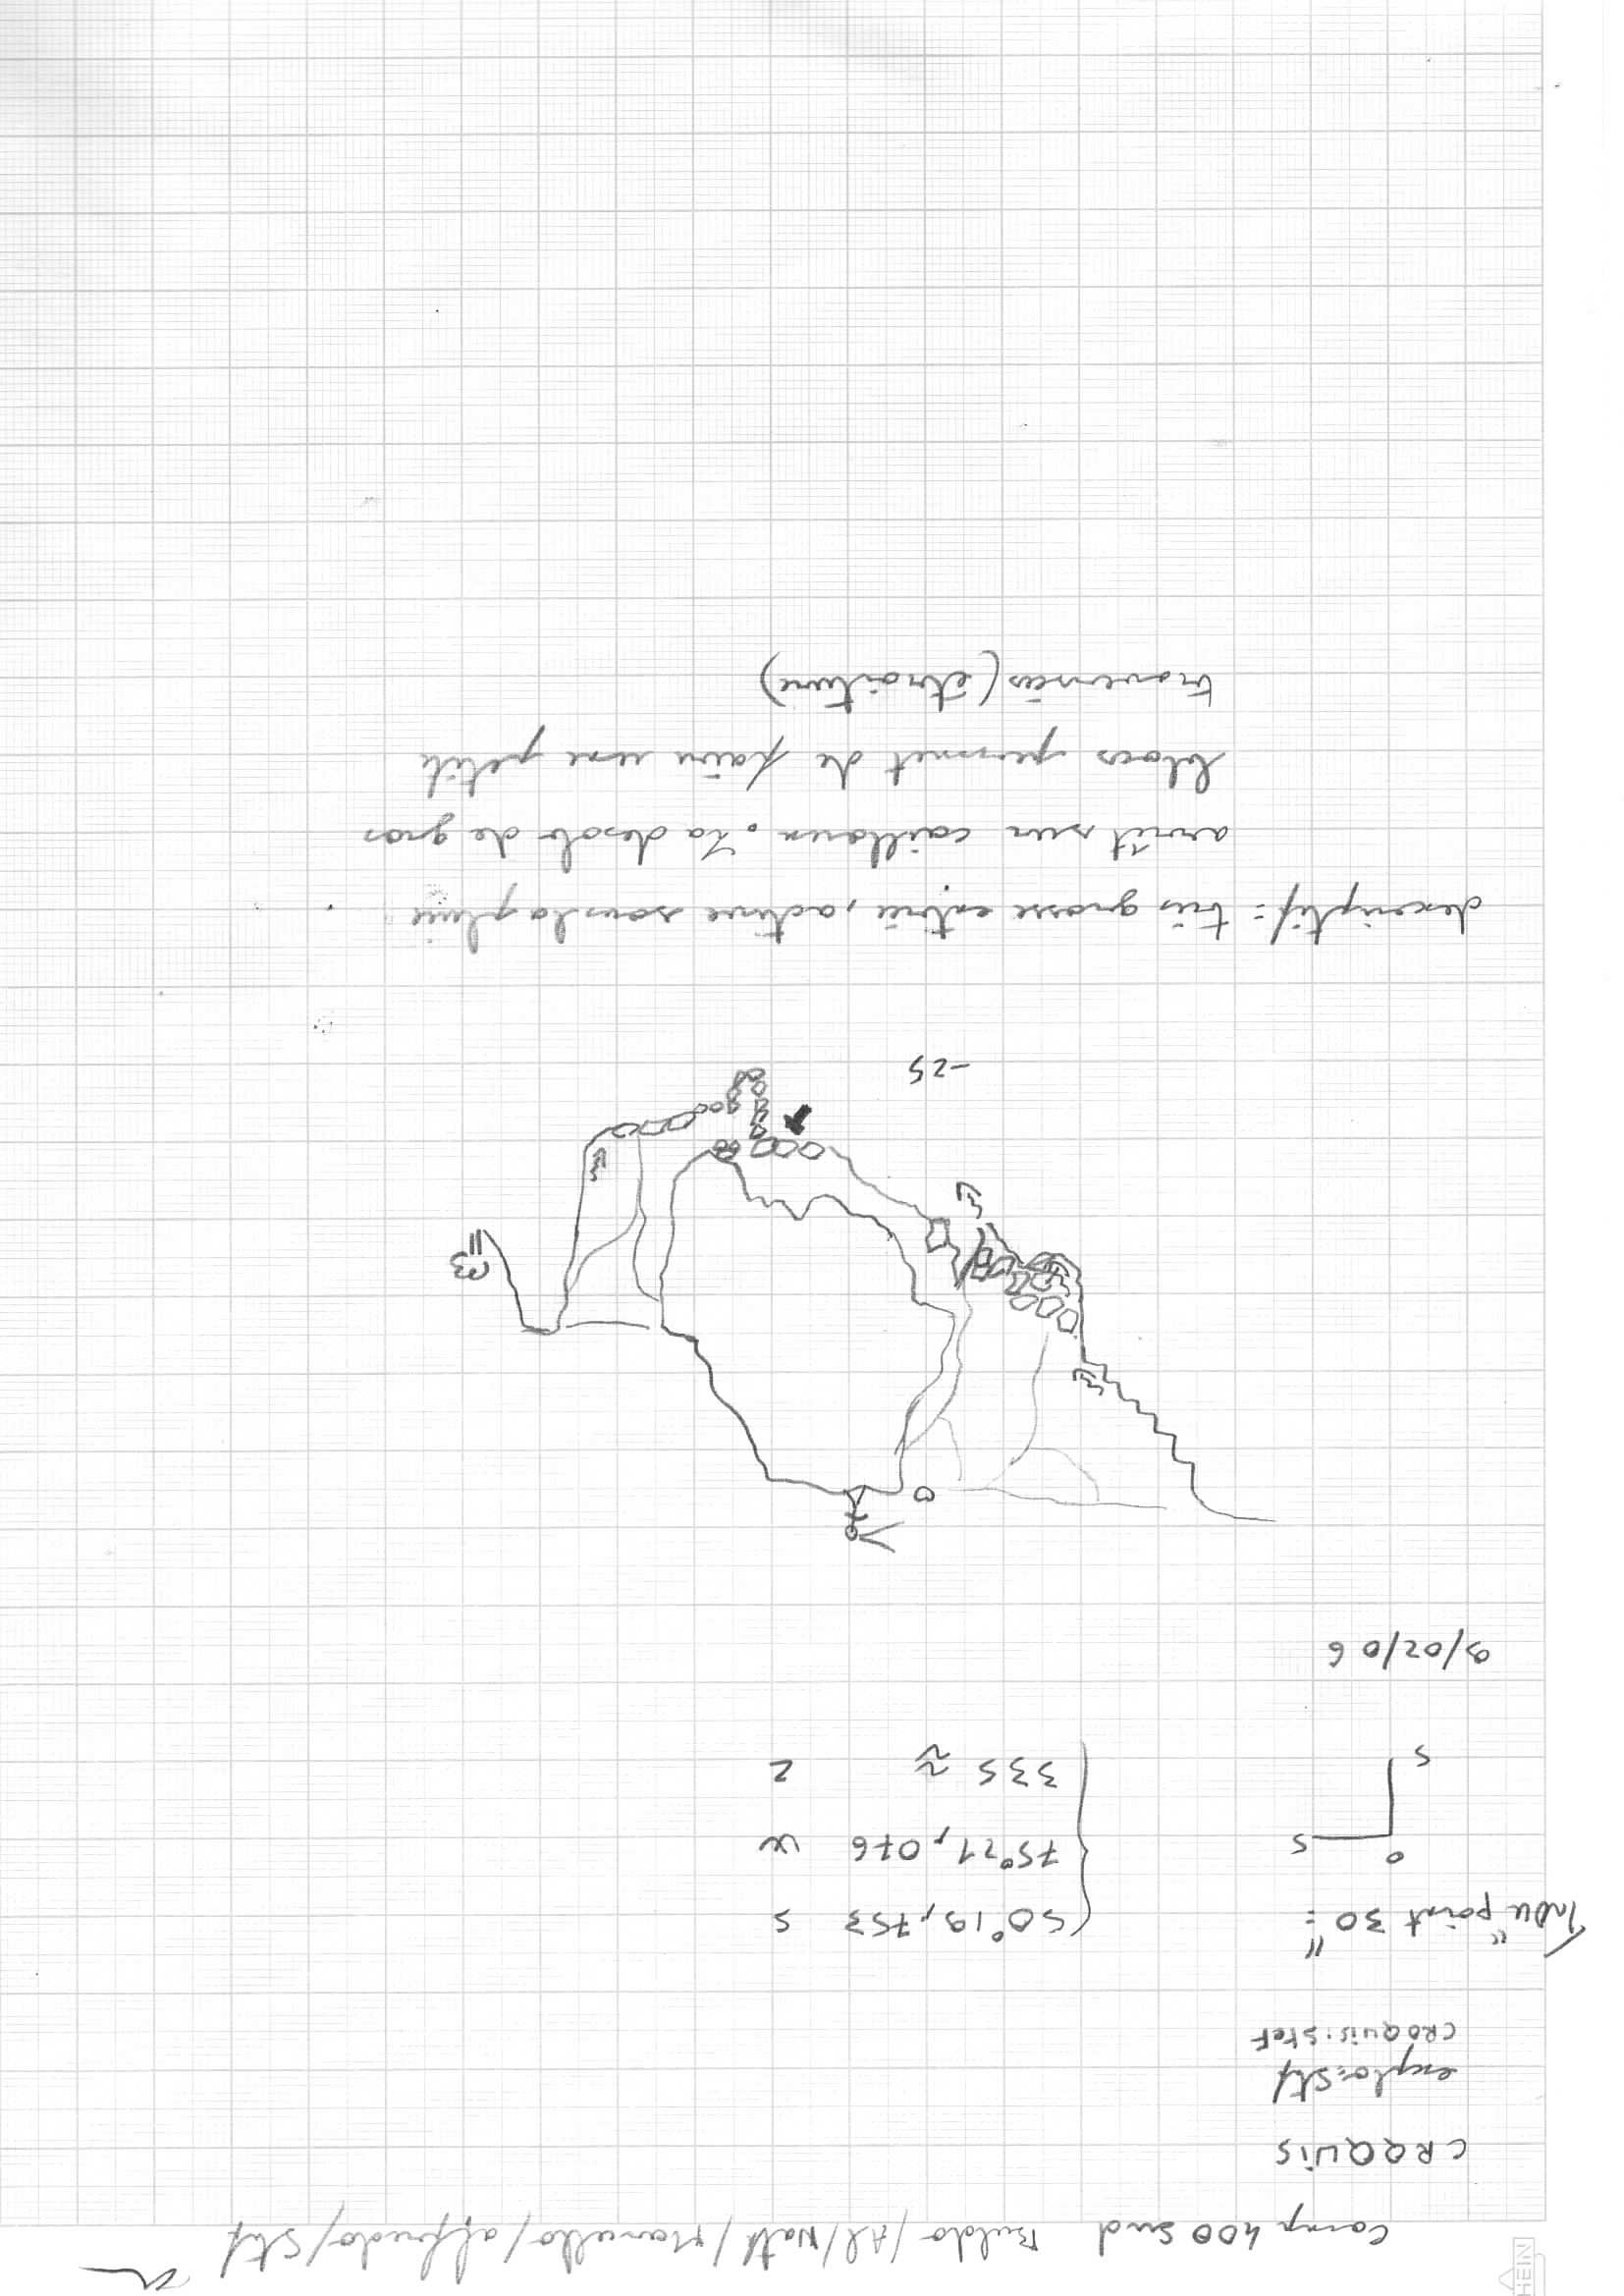 Camp 400 Sud Buldo / Al / Nath / Marcello / alfredo / Stef
CROQUIS
explo: Stef
CROQUIS: Stef
"point 30" =
50°19,753 S
75°21,076 W
335 ≈ Z
0
5
5
9/02/06
0
-25
descriptif = très grosse entrée, active sous la pluie
arrêt sur cailloux. La desob de gros
blocs permet de faire une petite
traversée (étroiture)
HEIN